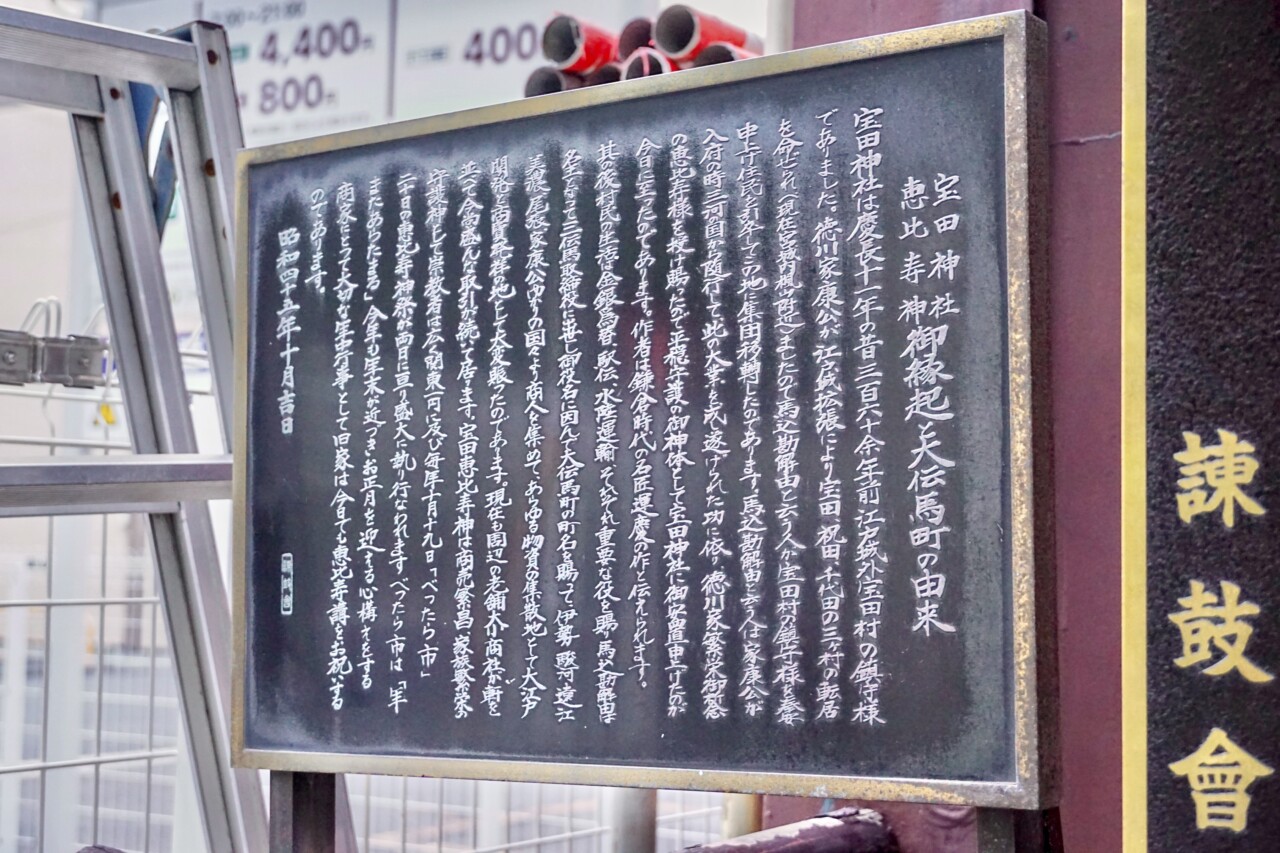 宝田神社
恵比寿神
御縁起と大伝馬町の由来
宝田神社は慶長十一年の昔三百六十余年前江戸城外宝田村の鎮守様
でありました。徳川家康公が江戸城拡張により宝田、祝田、千代田の三ヶ村の転居
を命ぜられ(現在宮城内楓山附近)ましたので馬込勘解由と云う人が宝田村の鎮守様を奉
申上げ住民を引率してこの地に集団移轉したのであります。馬込勘解由と云う人は家康公が
入府の時三河の国から随行して此の大業を成し遂げられた功に依り徳川家繁栄御祈念
の恵比寿様を授け賜ったので平穏守護の御神体として宝田神社に御安置申上げたのが
今日に至ったのであります。作者は鎌倉時代の名匠運慶の作と伝えられます。
其の後村民の生活は金銀為替、駅伝、水陸運輸、それぞれ重要な役を賜り馬込勘解由は
名主となって三伝馬取締役に出世し御役名に因んで大伝馬町の町名を賜って伊勢、駿河、遠江
美濃、尾張、家康公ゆかりの国々より商人を集めて、あらゆる物資の集散地として大江戸
開発と商賈発祥の地として大変賑ったのであります。現在も周辺の老舗大小商社が軒を
並べて今尚盛んな取引が続いて居ます。宝田恵比寿神は商売繁昌、家族繁栄の
守護神として崇敬者は広く関東一円に及び毎年十月十九日「べったら市」
二十日の恵比寿神祭が両日に亘り盛大に執り行なわれます。べったら市は「年
またあらたまる」今年も年末が近づきお正月を迎える心構えをする
商家にとって大切な年中行事として旧家は今日でも恵比寿講をお祝いする
のであります。
昭和四十五年十月吉日
諫鼓會
4,400円
800円
400